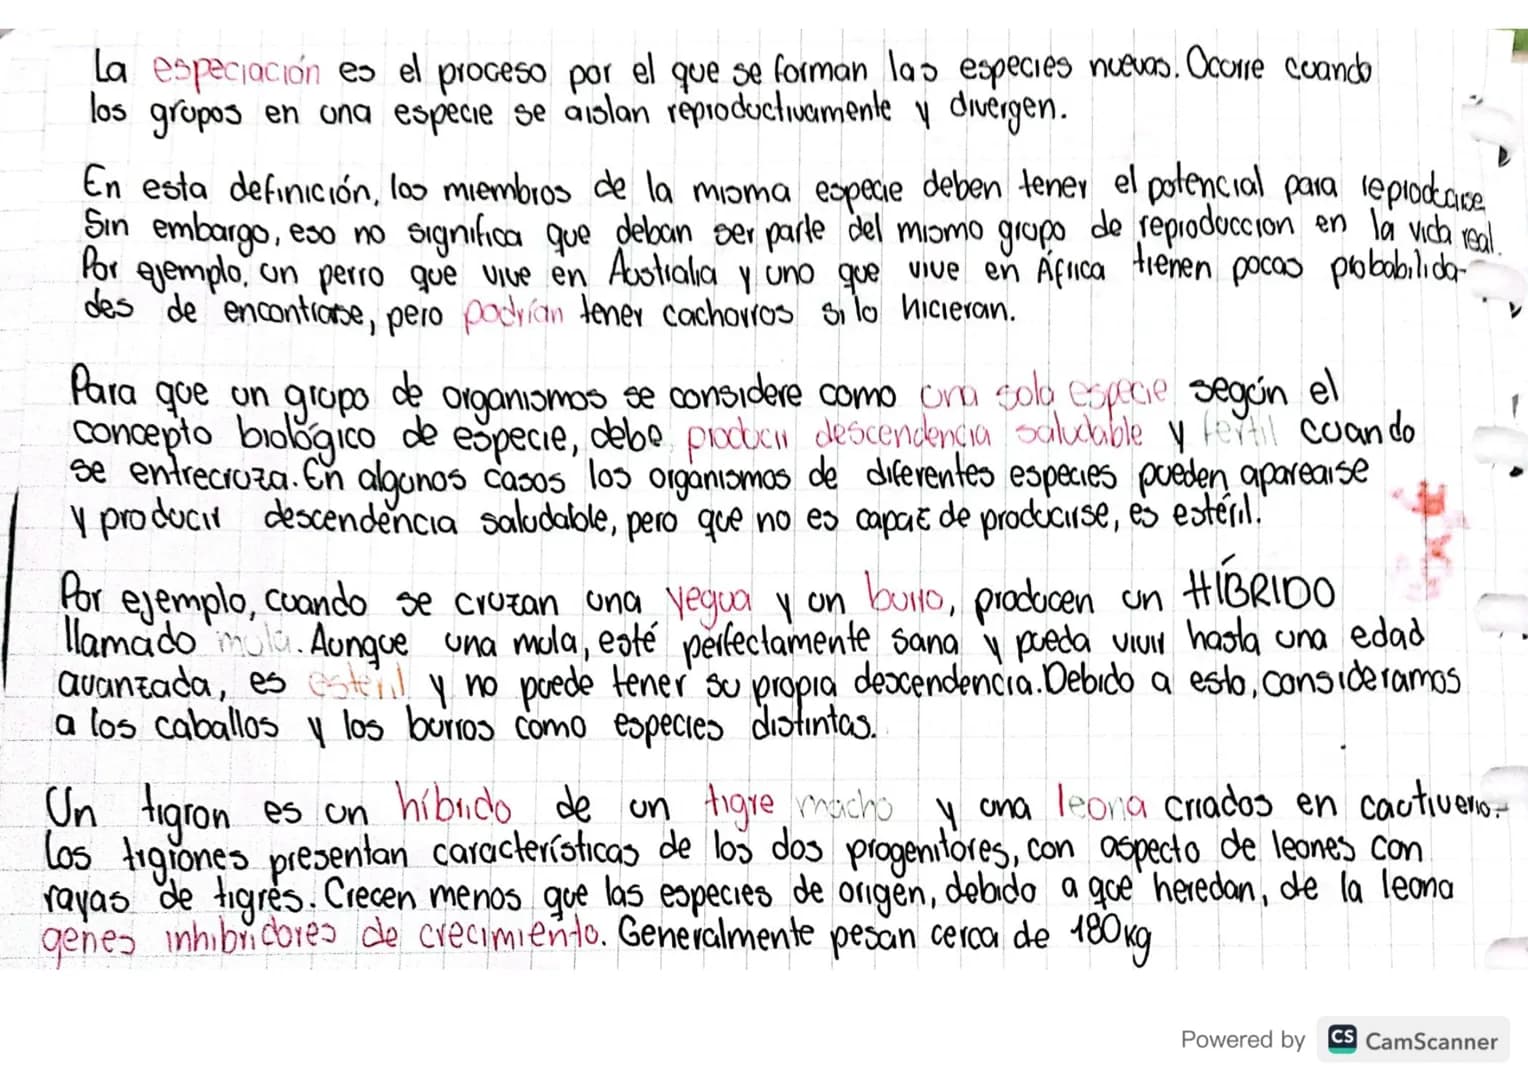 La especiación es el proceso por el que se forman las especies nuevas. Ocurre cuando
los grupos en una especie se aislan reproductivamente y divergen.
En esta definición, los miembros de la misma especie deben tener el potencial para reproducirse
Sin embargo, eso no significa que deban ser parte del mismo grupo de reproduccion en la vida real.
Por ejemplo, un perro que vive en Australia y uno que vive en África tienen pocas probabilida-
des de encontrarse, pero podrían tener cachorros si lo hicieran.
Para que un grupo de organismos se considere como una sola especie según el
concepto biológico de especie, debe producir descendencia saludable y fértil cuando
se entrecruza. En algunos casos los organismos de diferentes especies pueden aparearse
y producir descendencia saludable, pero que no es capaz de producirse, es estéril.
Por ejemplo, cuando se cruzan una yegua y un burro, producen un HÍBRIDO
llamado mula. Aunque una mula, esté perfectamente sana y pueda vivir hasta una edad
avanzada, es estéril y no puede tener su propia descendencia. Debido a esto, consideramos
a los caballos y los burros como especies distintas.
Un tigron es un híbrido de un tigre macho y una leona criados en cautiverio.
Los tigrones presentan características de los dos progenitores, con aspecto de leones con
rayas de tigres. Crecen menos que las especies de origen, debido a que heredan, de la leona
genes inhibridores de crecimiento. Generalmente pesan cerca de 180kg
Powered by CS CamScanner